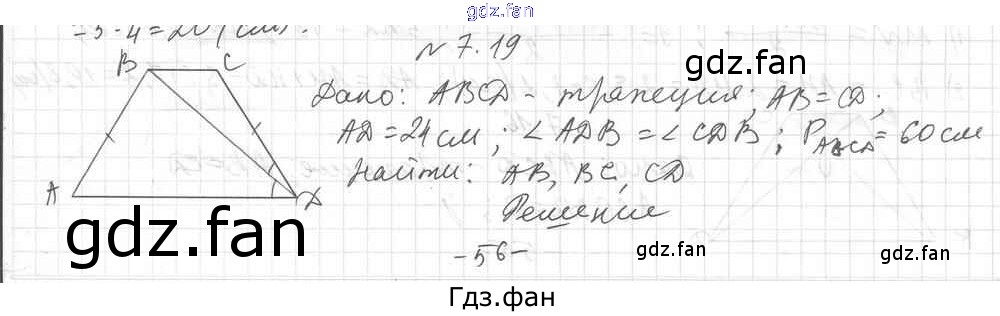 gdz.fan
-5·4=20 (см).
N 7.19
B C
Дано: ABCD - трапеция; AB=CD;
AD=24 см; ∠ADB=∠CDB; P_ABCD=60 см
Найти: AB, BC, CD
A D
Решение
-56-
gdz.fan
gdz.fan
gdz.fan
gdz.fan
Гдз.фан